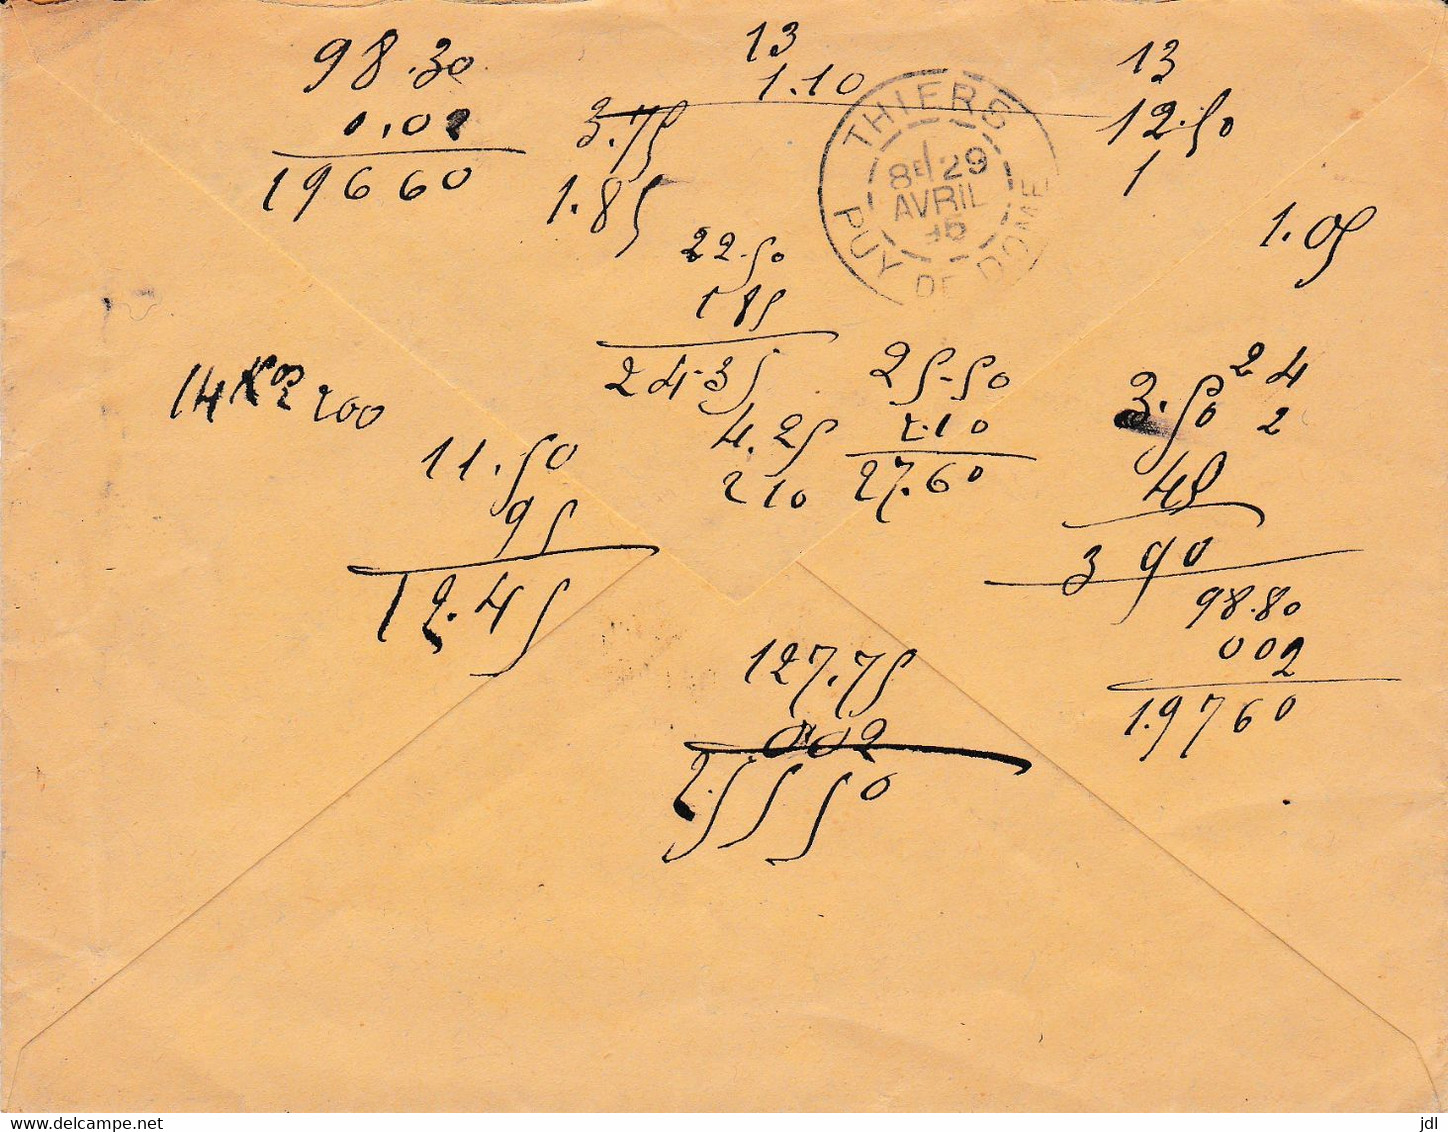 98.30
0.02
19660
13
1.10
3.75
1.85
13
12.50
1
1.05
THIERS
8E 29
AVRIL
PUY DE DOME
22.50
1 85
24.35
14 200
11.50
95
12.45
4.25
210
25.50
2.10
27.60
3.50
45
3 90
24
2
98.80
002
1.9760
127.75
0.02
2.5550
www.delcampe.net
jdl